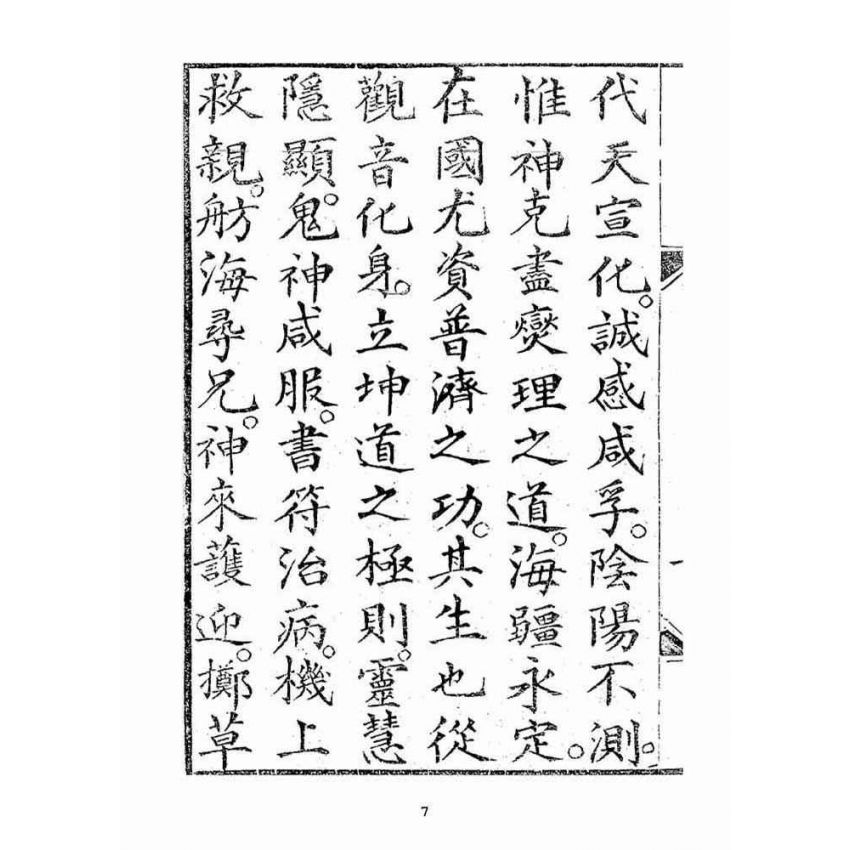 代天宣化。誠感咸孚。陰陽不測。
惟神克盡燮理之道。海疆永定。
在國尤資普濟之功。其生也從
觀音化身。立坤道之極則。靈慧
隱顯。鬼神咸服。書符治病。機上
救親。舫海尋兄。神來護迎。擲草
7